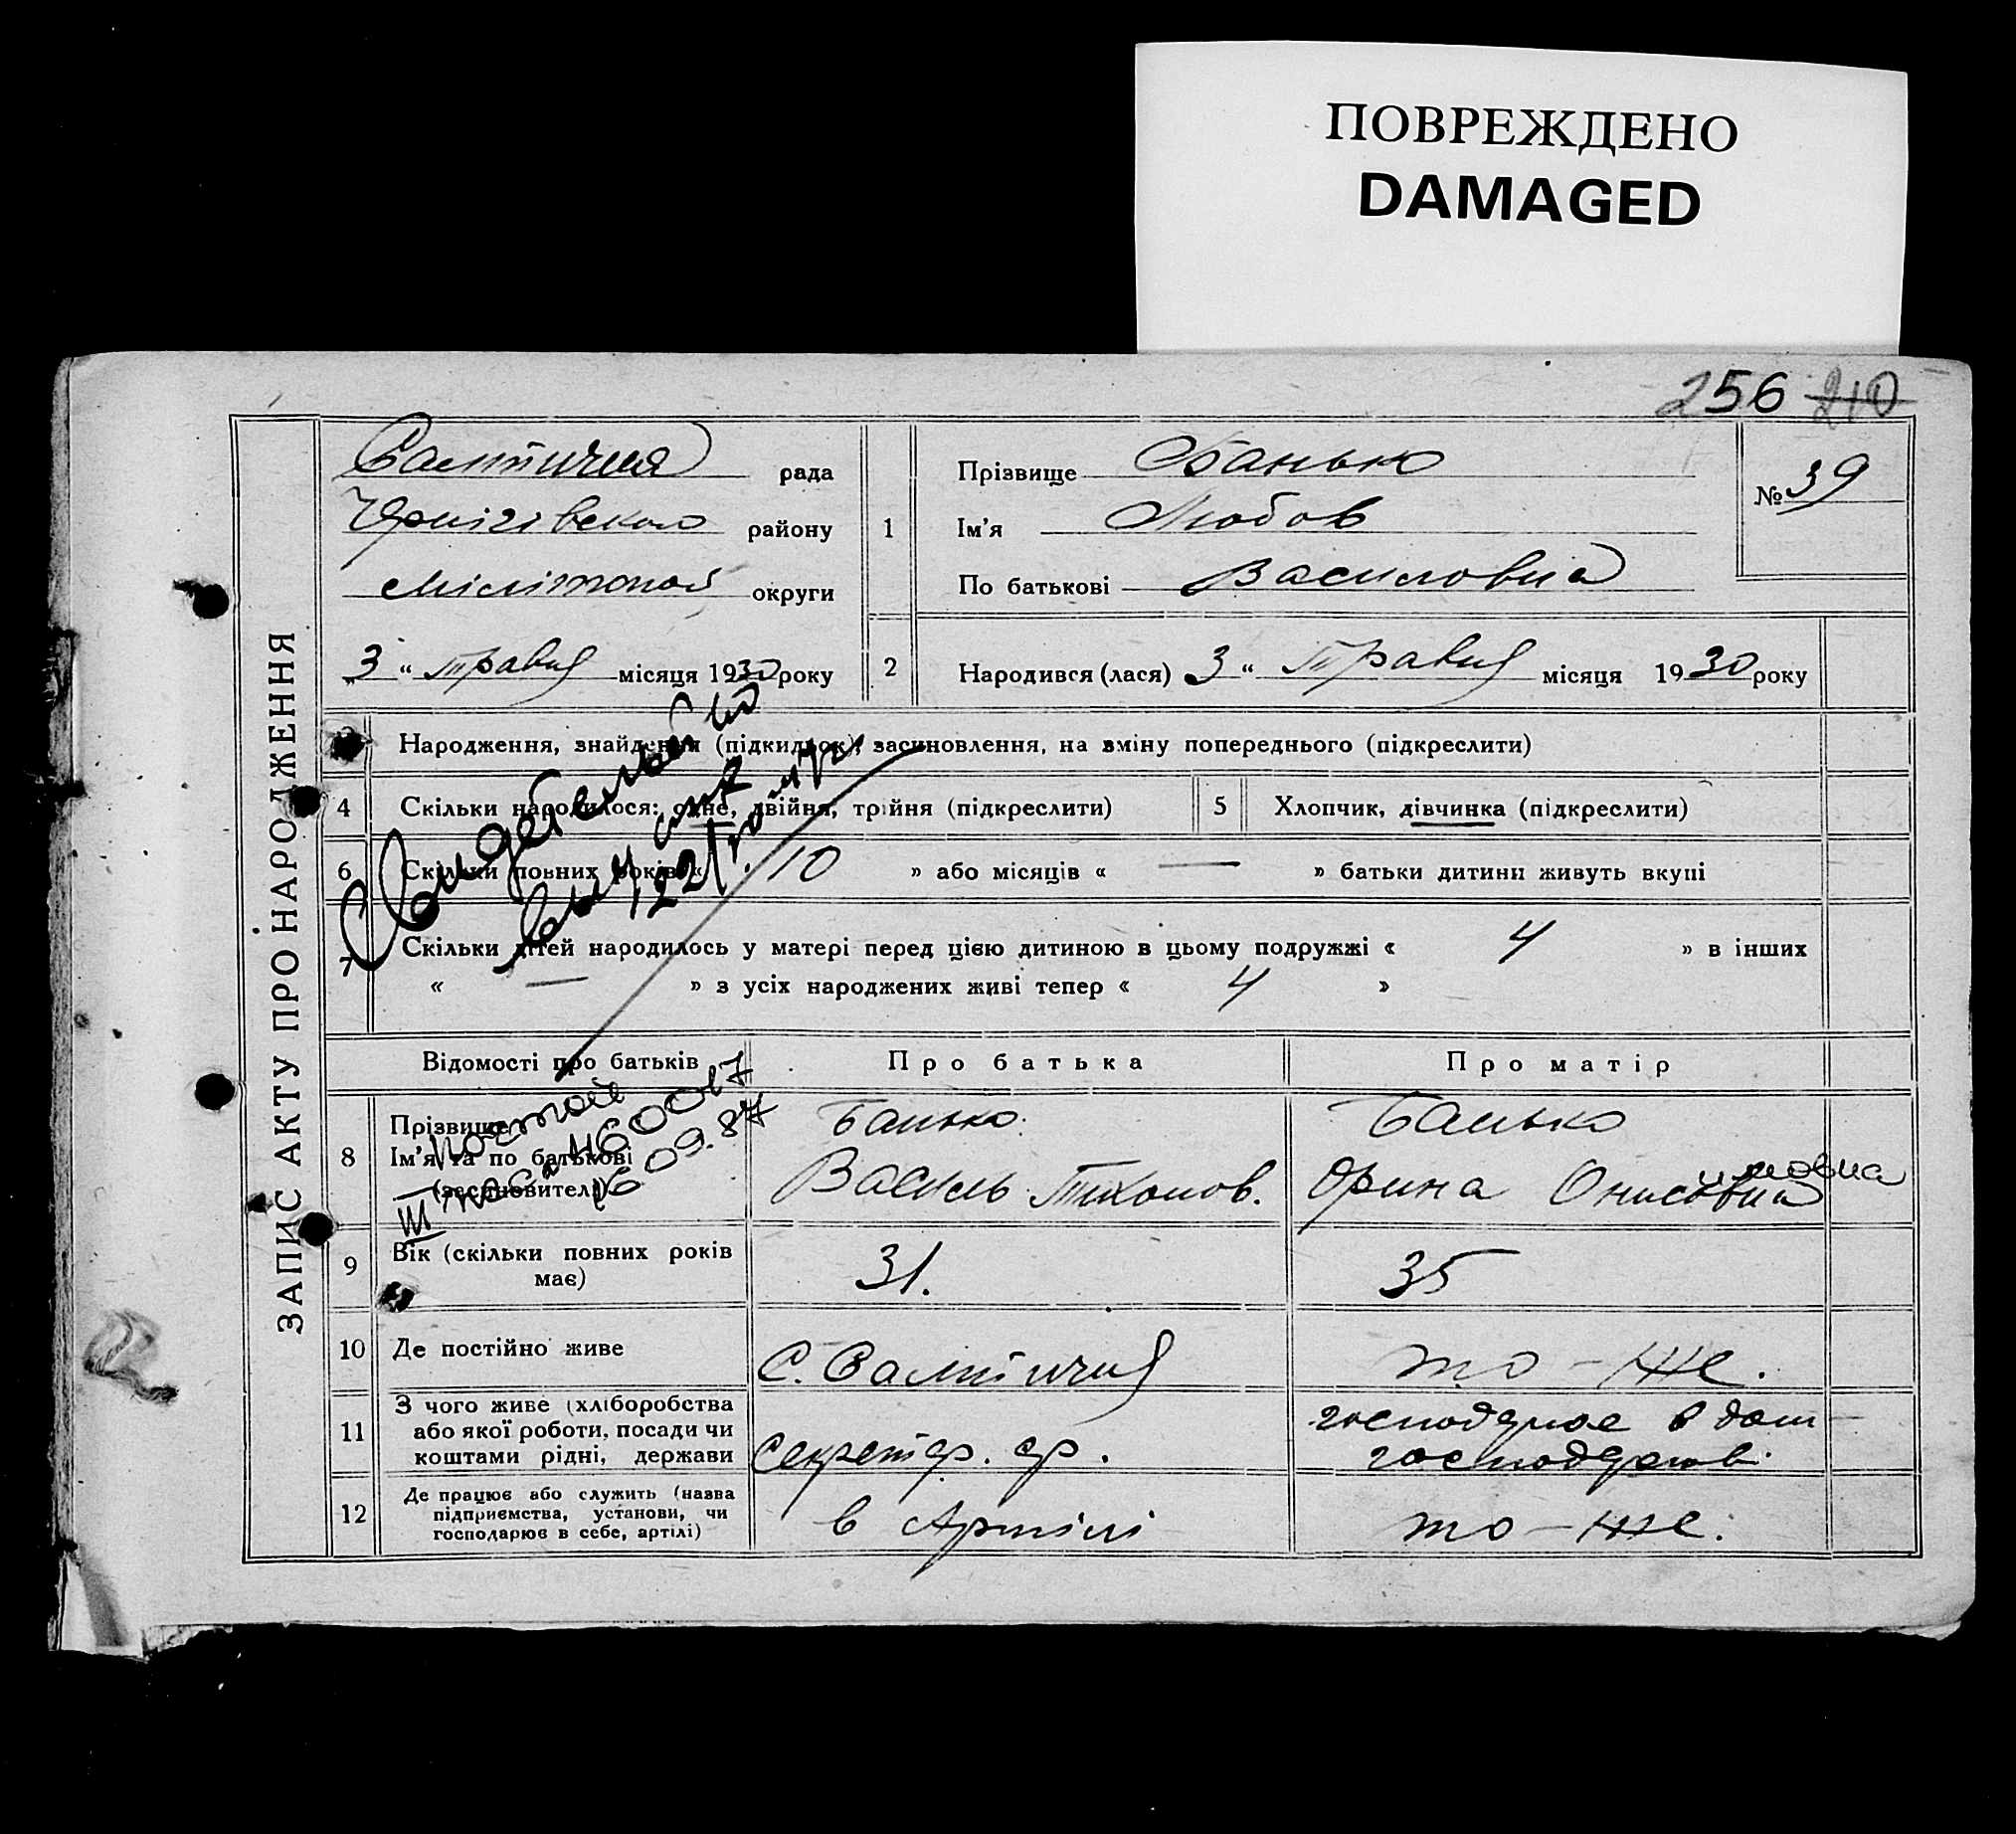 ПОВРЕЖДЕНО
DAMAGED
256 210
ЗАПИС АКТУ ПРО НАРОДЖЕННЯ
Салтичия рада
Чернігівського району
Мелітопол округи
„3 “ травня місяця 1930 року
1
Прізвище Банько
Ім'я Любов
По батькові Василовна
№ 39
2 Народився (лася) 3 “ Травня місяця 1930 року
3 Народження, знайдення (підкидьок), засиновлення, на зміну попереднього (підкреслити)
4 Скільки народилося: одне, двійня, трійня (підкреслити)
5 Хлопчик, дівчинка (підкреслити)
6 Скільки повних років « 10 » або місяців « — » батьки дитини живуть вкупі
7 Скільки дітей народилось у матері перед цією дитиною в цьому подружжі « 4 » в інших
« — » з усіх народжених живі тепер « 4 »
Відомості про батьків Про батька Про матір
8 Прізвище
Ім'я та по батькові
(засиновителя)
Банько
Василь Тихонов.
Банько
Орина Онисовна
9 Вік (скільки повних років
має)
31. 35
10 Де постійно живе С. Салтичия то-же.
11 З чого живе (хліборобства
або якої роботи, посади чи
коштами рідні, держави
Секретар.
в дом
12 Де працює або служить (назва
підприємства, установи, чи
господарює в себе, артілі)
в Артілі то-же.